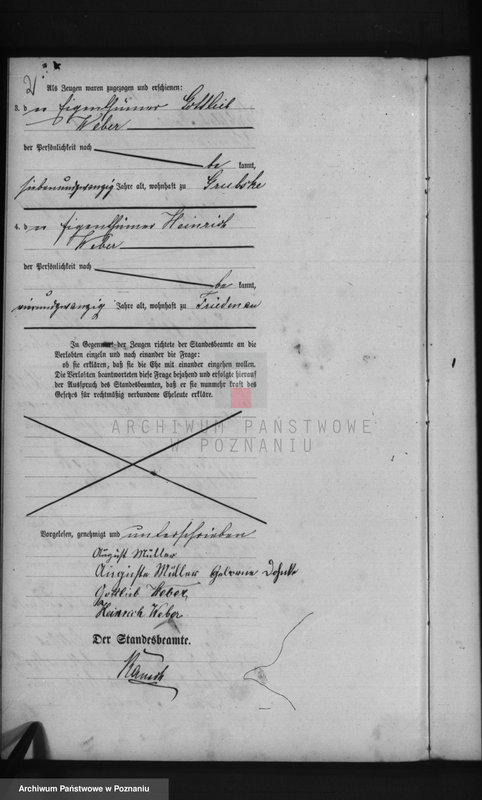 2
Als Zeugen waren zugezogen und erschienen:
3. der Eigenthümer Gottlieb
Weber
der Persönlichkeit nach
be kannt,
siebenundzwanzig Jahre alt, wohnhaft zu Grubske
4. der Eigenthümer Heinrich
Weber
der Persönlichkeit nach
be kannt,
vierundzwanzig Jahre alt, wohnhaft zu Friedenau
In Gegenwart der Zeugen richtete der Standesbeamte an die
Verlobten einzeln und nach einander die Frage:
ob sie erklären, daß sie die Ehe mit einander eingehen wollen.
Die Verlobten beantworteten diese Frage bejahend und erfolgte hierauf
der Ausspruch des Standesbeamten, daß er sie nunmehr kraft des
Gesetzes für rechtmäßig verbundene Eheleute erkläre.
ARCHIWUM PAŃSTWOWE
W POZNANIU
Vorgelesen, genehmigt und unterschrieben
August Müller
Auguste Müller Geborne
Gottlieb Weber
Heinrich Weber
Der Standesbeamte.
Archiwum Państwowe w Poznaniu